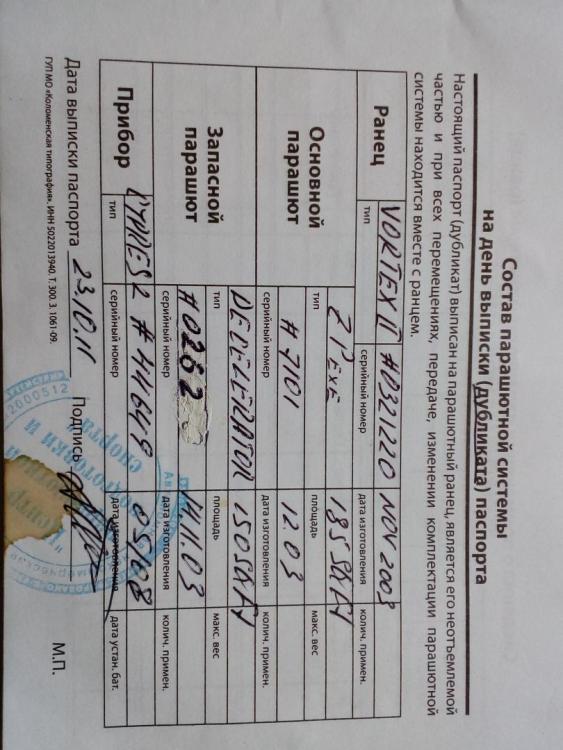 Состав парашютной системы
на день выписки (дубликата) паспорта
Настоящий паспорт (дубликат) выписан на парашютный ранец, является его неотъемлемой
частью и при всех перемещениях, передаче, изменении комплектации парашютной
системы находится вместе с ранцем.
Ранец VORTEX II #0321220 NOV 2003
тип серийный номер дата изготовления колич. примен.
Основной парашют
ZIPEXE 185 SQ FT
тип площадь макс. вес
#7101 12.03
серийный номер дата изготовления колич. примен.
Запасной парашют
DECELERATOR 150 SQ FT
тип площадь макс. вес
#0262 11.03
серийный номер дата изготовления колич. примен.
Прибор CYPRES 2 #44649 05/08
тип серийный номер дата изготовления дата устан. бат.
Дата выписки паспорта 23.10.11 Подпись М.П.
ГУП МО «Коломенская типография». ИНН 5022013940. Т. 300. З. 1061-09.
2000512
подготовки и
спорта